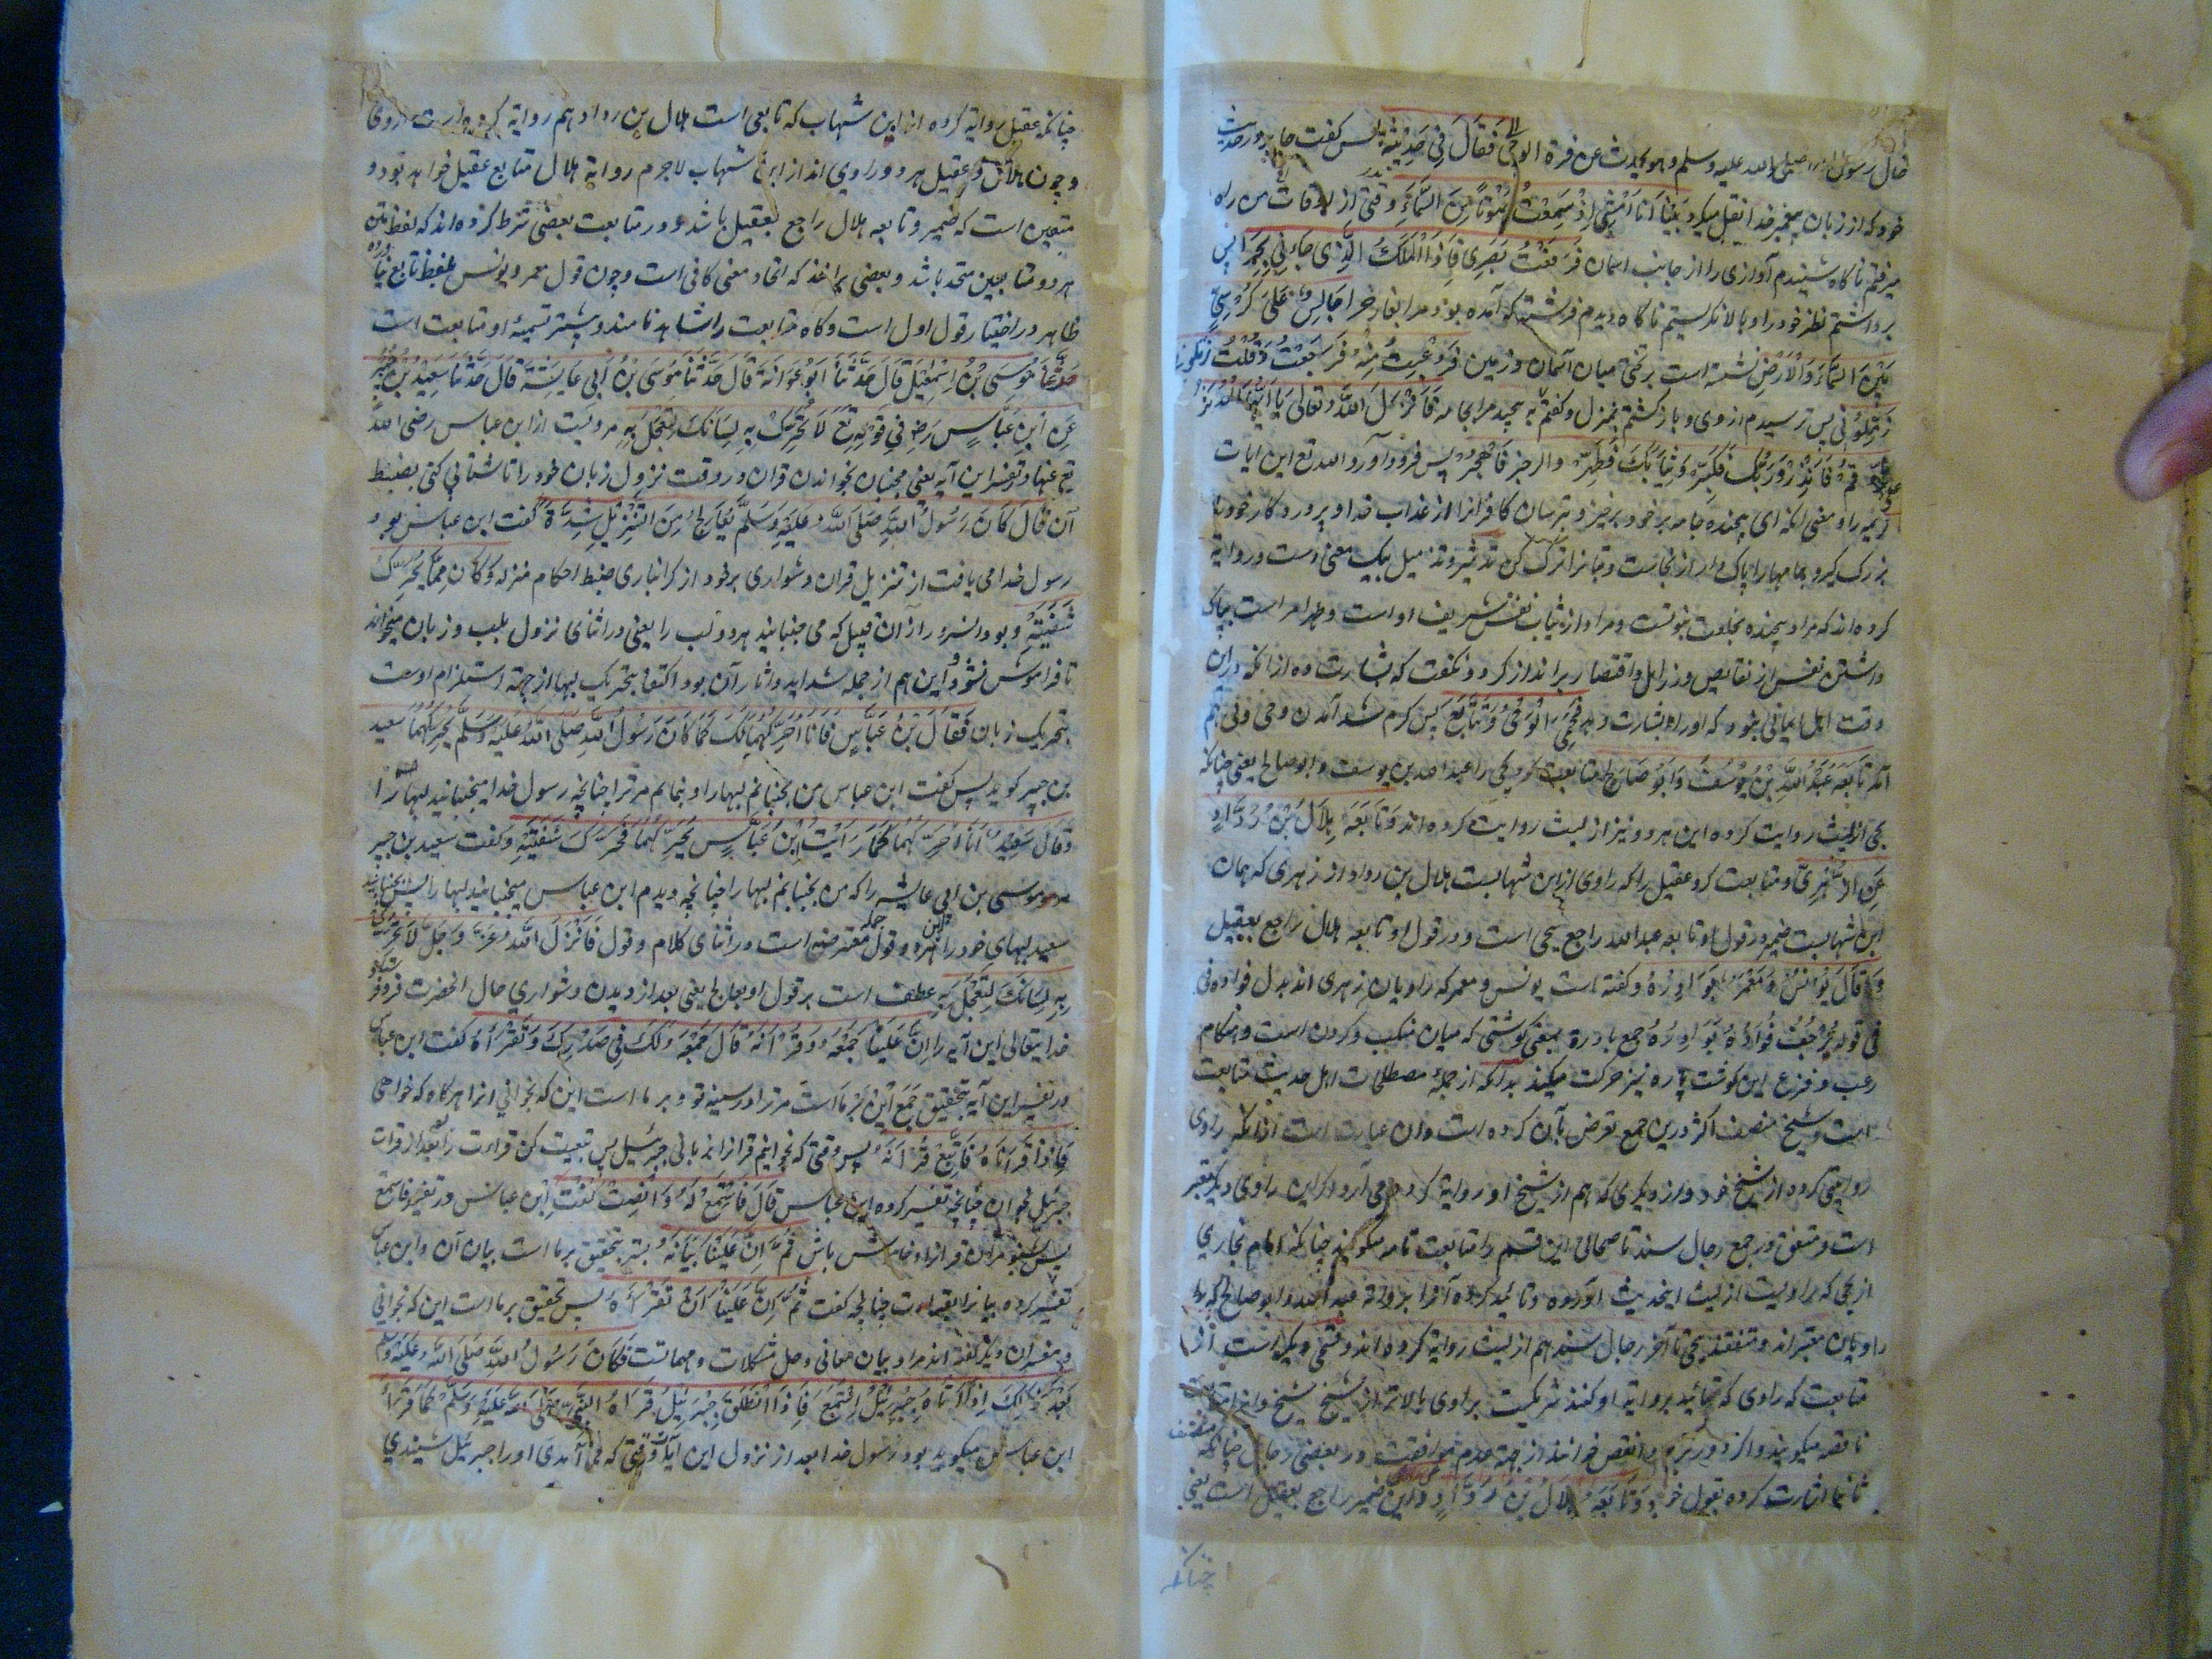 قال رسول الله صلی الله علیه وسلم وهو یحدث عن فترة الوحی فَقَالَ فِی حَدِیْثِهِ پس گفت جابر در حدیث
خود که از زبان پیغمبر خدا نقل میکرد بَیْنَا اَنَا اَمْشِی اِذْ سَمِعْتُ صَوْتًا مِنَ السَّمَاءِ وقتی از اوقات من راه
میرفتم ناگاه شنیدم آوازی را از جانب اسمان فَرَفَعْتُ بَصَرِی فَاِذَا الْمَلَكُ الَّذِی جَاءَنِی بِحِرَا پس
برداشتم نظر خود را و بالا نگریستم ناگاه دیدم فرشته که آمده بود مرا بغار حرا جَالِسٌ عَلَی كُرْسِیٍّ
بَیْنَ السَّمَاءِ وَالْاَرْضِ نشسته است بر تختی میان آسمان و زمین فَرُعِبْتُ مِنْهُ فَرَجَعْتُ فَقُلْتُ زملونی
زَمِّلُوْنِی پس ترسیدم از وی و باز گشتم بمنزل و گفتم به پیچید مرا بجامه فَاَنْزَلَ اللّٰهُ تعالی یَا اَیُّهَا الْمُدَّثِّرُ
قُمْ فَاَنْذِرْ وَرَبَّكَ فَكَبِّرْ وَثِیَابَكَ فَطَهِّرْ والرجز فَاهْجُرْ پس فرود آورد الله تع این ایات
کریمه را و معنی انکه ای پیچنده جامه بر خود برخیز و بترسان کافرانرا از عذاب خدا و پروردگار خود را
بزرگ گیر و جامهارا پاک دار از نجاست و بتانرا ترک کن تدثیر و تزمیل بیک معنی است و روایة
کرده اند که مراد پیچنده بخلعت نبوتست و مراد از ثیاب نفس شریف او است و طهر امر است بپاکی
داشتن نفس از نقایص و رذایل و اقتصار بر انذار کرد و نگفت که بشارت ده ازانکه دران
وقت اهل ایمانی نبود که اورا بشارت دهد فَحَمِیَ الْوَحْیُ وَتَتَابَعَ پس گرم شد آمدن وحی و پی هم
آمد تَابَعَهُ عَبْدُ اللّٰهِ بْنُ یُوْسُفَ وَاَبُوْ صَالِحٍ متابعت کرد یحیی را عبد الله بن یوسف و ابو صالح یعنی چنانکه
یحیی از لیث روایت کرده این هر دو نیز از لیث روایت کرده اند وَتَابَعَهُ هِلَالُ بْنُ رَدَّادٍ
عَنِ الزُّهْرِیِّ و متابعت کرد عقیل را که راوی از ابن شهابست هلال بن رداد از زهری که همان
ابن شهابست ضمیر در قول او تابعه عبد الله راجع بیحیی است و در قول او تابعه هلال راجع بعقیل
وَقَالَ یُوْنُسُ وَمَعْمَرٌ بَوَادِرُهُ و گفته است یونس و معمر که راویان زهری اند بدل فواده فی
فی قوله یَرْجُفُ فُوَادُهُ بَوَادِرُهُ جمع بادره بمعنی گوشتی که میان منکب و گردن است و هنگام
رعب و فزع این گوشت پاره نیز حرکت میکند بدانکه از جملهٔ مصطلحات اهل حدیث متابعت
است و شیخ مصنف اکثر درین جمع تعرض بآن کرده است وان عبارت است ازانکه راوی
روایتی کرده از شیخ خود و از دیگری که هم از شیخ او روایة کرده می آرد و اگر این راوی دیگر معتبر
است و متفق در جمع رجال سند تا صحابی این قسم را متابعت تامه میگویند چنانکه امام بخاری
از یحیی که راویست از لیث اینحدیث آورده و تائید کرده آنرا بروایة عبد الله و ابو صالح که
راویان معتبراند و متفقند بیحیی تا آخر رجال سند هم از لیث روایة کرده اند و قسمی دیگر است از
متابعت که راوی که تائید بروایة او کنند شریکست براوی بالاتر از شیخ شیخ و انرا متابعت
ناقصه میگویند و اگر دورتر بود انقص خوانند از جهة عدم موافقت در بعضی رجال چنانکه مصنف
ثانیا اشارت کرده بقول خود وَتَابَعَهُ هِلَالُ بْنُ رَدَّادٍ و این ضمیر راجع بعقیل است یعنی
چنانکه
چنانکه عقیل روایة کرده از ابن شهاب که تابعی است هلال بن رداد هم روایة کرده است از وی
و چون هلال و عقیل هر دو راوی اند از ابن شهاب لاجرم روایة هلال متابع عقیل خواهد بود و
متعین است که ضمیر و تابعه هلال راجع بعقیل باشد و در متابعت بعضی شرط کرده اند که لفظ متن
هر دو متابعین متحد باشد و بعضی برانند که اتحاد معنی کافی است و چون قول معمر و یونس بلفظ تابع نیاورده
ظاهر در اختیار قول اول است و گاه متابعت را شاهد نامند و بیشتر تسمیهٔ او متابعت است
حَدَّثَنَا مُوْسَی بْنُ اِسْمٰعِیْلَ قَالَ حَدَّثَنَا اَبُوْ عَوَانَةَ قَالَ حَدَّثَنَا مُوْسَی بْنُ اَبِی عَایِشَةَ قَالَ حَدَّثَنَا سَعِیْدُ بْنُ جُبَیْرٍ
عَنِ ابْنِ عَبَّاسٍ رَضِ فِی قَوْلِهِ تع لَا تُحَرِّكْ بِهِ لِسَانَكَ لِتَعْجَلَ بِهِ مرویست از ابن عباس رضی الله
تع عنها در تفسیر این آیه یعنی مجنبان بخواندن قران در وقت نزول زبان خود را تا شتابی کنی بضبط
آن قَالَ كَانَ رَسُوْلُ اللّٰهِ صَلَّی اللّٰهُ عَلَیْهِ وَسَلَّمَ یُعَالِجُ مِنَ التَّنْزِیْلِ شِدَّةً گفت ابن عباس بود
رسول خدا می یافت از تنزیل قران دشواری برخود از گرانباری ضبط احکام منزله وَكَانَ مِمَّا یُحَرِّكُ
شَفَتَیْهِ و بود انسرور از آن قبیل که می جنبانید هر دو لب را یعنی در اثنای نزول بلب و زبان میخواند
تا فراموش نشود و این هم از جمله شداید و اثار آن بود و اکتفا بتحریک لبها از جهة استلزام اوست
بتحریک زبان فَقَالَ ابْنُ عَبَّاسٍ فَاَنَا اُحَرِّكُهُمَا لَكَ كَمَا كَانَ رَسُوْلُ اللّٰهِ صَلَّی اللّٰهُ عَلَیْهِ وَسَلَّمَ یُحَرِّكُهُمَا سعید
بن جبیر گوید پس گفت ابن عباس من بجنبانم لبهارا و بنمایم مر ترا چنانچه رسول خدا میجنبانید لبها را
وَقَالَ سَعِیْدٌ اَنَا اُحَرِّكُهُمَا كَمَا رَاَیْتُ ابْنَ عَبَّاسٍ یُحَرِّكُهُمَا فَحَرَّكَ شَفَتَیْهِ و گفت سعید بن جبیر
مر موسی بن ابی عایشه را که من بجنبانم لبها را چنانچه دیدم ابن عباس میجنبانید لبها را پس بجنبانید
سعید لبهای خود را و این هر دو قول جمله معترضه است در اثنای کلام و قول فَاَنْزَلَ اللّٰهُ عَزَّ وَجَلَّ لَا تُحَرِّكْ
بِهِ لِسَانَكَ لِتَعْجَلَ بِهِ عطف است بر قول او یعالج یعنی بعد از دیدن دشواری حال انحضرت فرو فرستاد
خدایتعالی این آیه را اِنَّ عَلَیْنَا جَمْعَهُ وَقُرْاٰنَهُ قَالَ جَمْعَهُ لَكَ فِی صَدْرِكَ وَتَقْرَاَهُ گفت ابن عباس
در تفسیر این آیه بتحقیق جمع این بر ما است مر ترا در سینه تو و بر ما است این که بخوانی انرا هرگاه که خواهی
فَاِذَا قَرَاْنَاهُ فَاتَّبِعْ قُرْاٰنَهُ پس وقتی که بخوانیم قرانرا بزبانی جبرئیل پس تبعیت کن قراءت را بعد از قرات
جبرئیل بخوان چنانچه تفسیر کرده ابن عباس قَالَ فَاسْتَمِعْ لَهُ وَاَنْصِتْ گفت ابن عباس در تفسیر فاستمع
پس بشنو مران قرانرا و خاموش باش ثُمَّ اِنَّ عَلَیْنَا بَیَانَهُ پستر بتحقیق بر ما است بیان آن و ابن عباس
تفسیر کرده بیانرا بقراءت چنانچه گفت ثُمَّ اِنَّ عَلَیْنَا اَنْ تَقْرَاَهُ پس بتحقیق بر ما است این که بخوانی
و مفسران دیگر گفته اند مراد بیان معانی و حل مشکلات و مهمانست فَكَانَ رَسُوْلُ اللّٰهِ صَلَّی اللّٰهُ عَلَیْهِ وَسَلَّمَ
بَعْدَ ذٰلِكَ اِذَا اَتَاهُ جِبْرَئِیْلُ اِسْتَمَعَ فَاِذَا انْطَلَقَ جِبْرَئِیْلُ قَرَاَهُ النَّبِیُّ صَلَّی اللّٰهُ عَلَیْهِ وَسَلَّمَ كَمَا قَرَاَهُ
ابن عباس میگوید بود رسول خدا بعد از نزول این آیات وقتی که می آمدی اورا جبرئیل شنیدی